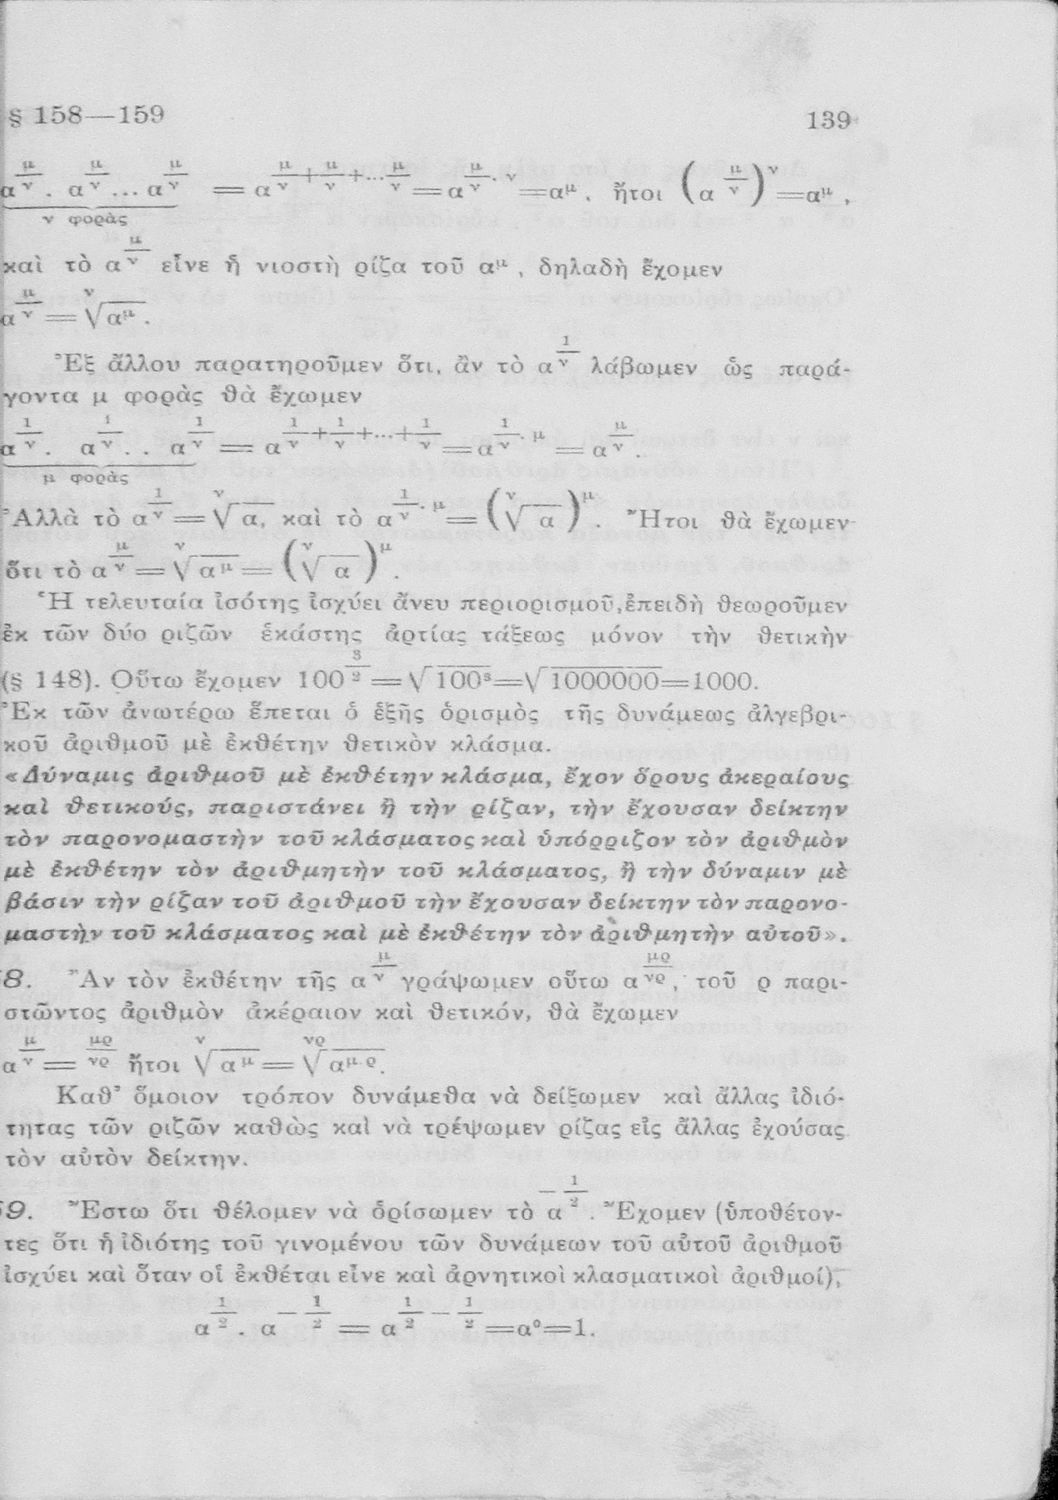 § 158—159 139
α^{μ/ν} . α^{μ/ν} ... α^{μ/ν} = α^{μ/ν + μ/ν + ... μ/ν} = α^{μ/ν · ν} = α^μ , ἤτοι (α^{μ/ν})^ν = α^μ ,
ν φορὰς
καὶ τὸ α^{μ/ν} εἶνε ἡ νιοστὴ ρίζα τοῦ α^μ , δηλαδὴ ἔχομεν
α^{μ/ν} = ^ν√α^μ .
Ἐξ ἄλλου παρατηροῦμεν ὅτι, ἂν τὸ α^{1/ν} λάβωμεν ὡς παρά-
γοντα μ φορὰς θὰ ἔχωμεν
α^{1/ν} . α^{1/ν} . . α^{1/ν} = α^{1/ν + 1/ν + ... + 1/ν} = α^{1/ν · μ} = α^{μ/ν} .
μ φορὰς
Ἀλλὰ τὸ α^{1/ν} = ^ν√α, καὶ τὸ α^{1/ν · μ} = (^ν√α)^μ . Ἤτοι θὰ ἔχωμεν
ὅτι τὸ α^{μ/ν} = ^ν√α^μ = (^ν√α)^μ .
Ἡ τελευταία ἰσότης ἰσχύει ἄνευ περιορισμοῦ, ἐπειδὴ θεωροῦμεν
ἐκ τῶν δύο ριζῶν ἑκάστης ἀρτίας τάξεως μόνον τὴν θετικὴν
(§ 148). Οὕτω ἔχομεν 100^{3/2} = √100^3 = √1000000 = 1000.
Ἐκ τῶν ἀνωτέρω ἕπεται ὁ ἑξῆς ὁρισμὸς τῆς δυνάμεως ἀλγεβρι-
κοῦ ἀριθμοῦ μὲ ἐκθέτην θετικὸν κλάσμα.
«Δύναμις ἀριθμοῦ μὲ ἐκθέτην κλάσμα, ἔχον ὅρους ἀκεραίους
καὶ θετικούς, παριστάνει ἢ τὴν ρίζαν, τὴν ἔχουσαν δείκτην
τὸν παρονομαστὴν τοῦ κλάσματος καὶ ὑπόρριζον τὸν ἀριθμὸν
μὲ ἐκθέτην τὸν ἀριθμητὴν τοῦ κλάσματος, ἢ τὴν δύναμιν μὲ
βάσιν τὴν ρίζαν τοῦ ἀριθμοῦ τὴν ἔχουσαν δείκτην τὸν παρονο-
μαστὴν τοῦ κλάσματος καὶ μὲ ἐκθέτην τὸν ἀριθμητὴν αὐτοῦ».
8. Ἂν τὸν ἐκθέτην τῆς α^{μ/ν} γράψωμεν οὕτω α^{μρ/νρ}, τοῦ ρ παρι-
στῶντος ἀριθμὸν ἀκέραιον καὶ θετικόν, θὰ ἔχωμεν
α^{μ/ν} = ^{μρ/νρ} ἤτοι ^ν√α^μ = ^{νρ}√α^{μ.ρ}.
Καθ’ ὅμοιον τρόπον δυνάμεθα νὰ δείξωμεν καὶ ἄλλας ἰδιό-
τητας τῶν ριζῶν καθὼς καὶ νὰ τρέψωμεν ρίζας εἰς ἄλλας ἐχούσας
τὸν αὐτὸν δείκτην.
9. Ἔστω ὅτι θέλομεν νὰ ὁρίσωμεν τὸ α^{-1/2} . Ἔχομεν (ὑποθέτον-
τες ὅτι ἡ ἰδιότης τοῦ γινομένου τῶν δυνάμεων τοῦ αὐτοῦ ἀριθμοῦ
ἰσχύει καὶ ὅταν οἱ ἐκθέται εἶνε καὶ ἀρνητικοὶ κλασματικοὶ ἀριθμοί),
α^{1/2} . α^{-1/2} = α^{1/2 - 1/2} = α^0 = 1.